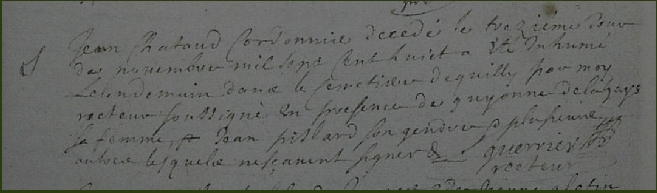 Jean Chataud Cordonnier decedé le trezième Jour
de novembre mil sept cent huict a été Inhumé
Lelendemain dans le semetiere dequilly par moy
recteur soussigné En presence de guyonne
sa femme, et Jean pissard son gendre & plusieurs
autres lesquels ne sçavent signer &
guerrier
recteur